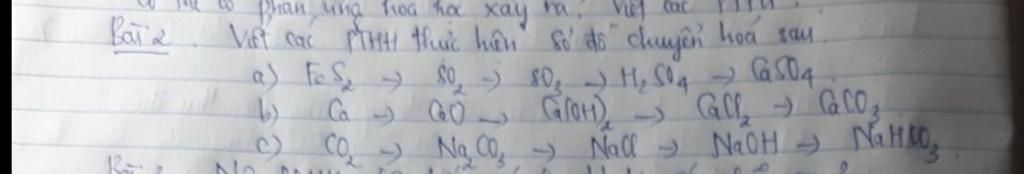 có phản ứng hoá học xảy ra. Viết các PTPƯ.
Bài 2. Viết các PTHH thực hiện sơ đồ chuyển hoá sau.
a) FeS₂ → SO₂ → SO₃ → H₂SO₄ → CaSO₄
b) Ca → CaO → Ca(OH)₂ → CaCl₂ → CaCO₃
c) CO₂ → Na₂CO₃ → NaCl → NaOH → NaHCO₃.